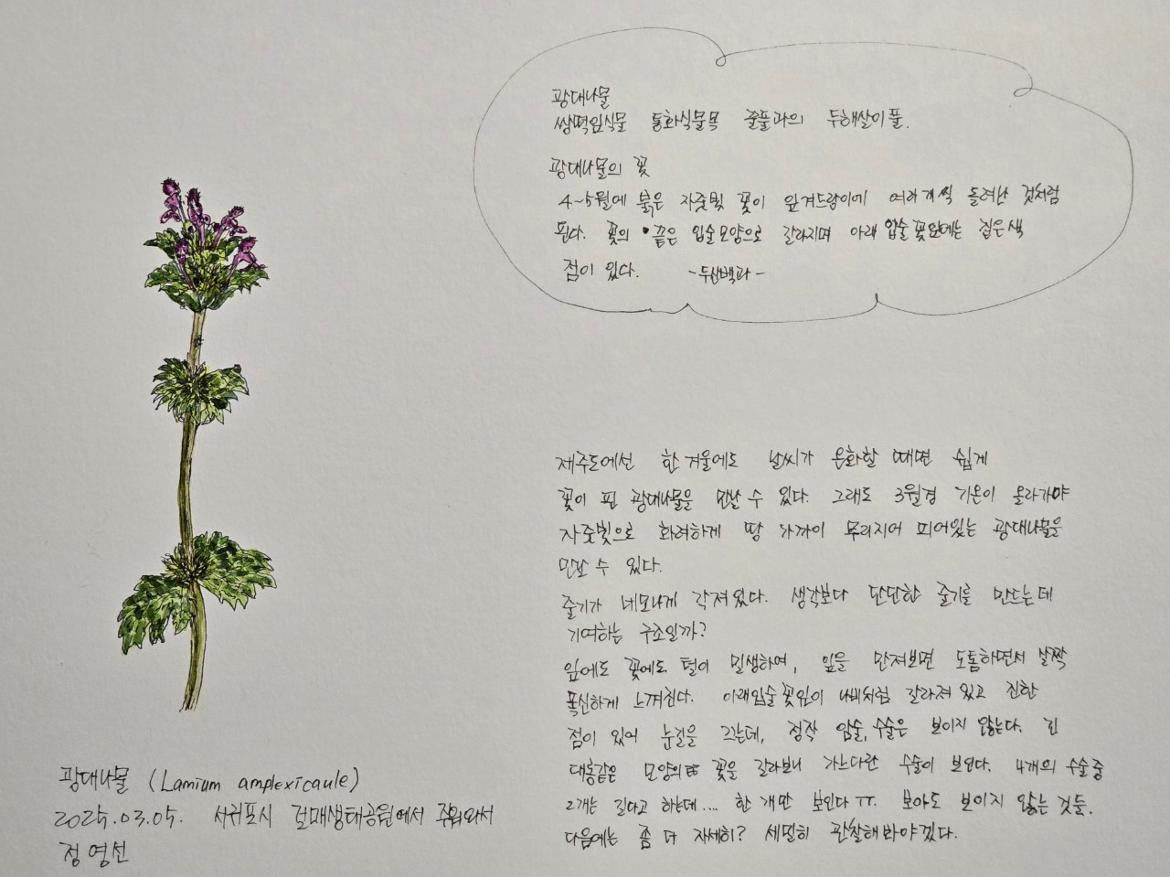 광대나물
쌍떡잎식물 통화식물목 꿀풀과의 두해살이풀.
광대나물의 꽃
4~5월에 붉은 자줏빛 꽃이 잎겨드랑이에 여러개씩 돌려난 것처럼
핀다. 꽃의 끝은 입술모양으로 갈라지며 아래 입술꽃잎에는 짙은색
점이 있다. -두산백과-
제주도에선 한겨울에도 날씨가 온화할 때면 쉽게
꽃이 핀 광대나물을 만날 수 있다. 그래도 3월경 기온이 올라가야
자줏빛으로 화려하게 땅 가까이 무리지어 피어있는 광대나물을
만날 수 있다.
줄기가 네모나게 각져있다. 생각보다 단단한 줄기를 만드는데
기여하는 구조일까?
잎에도 꽃에도 털이 밀생하여, 잎을 만져보면 도톰하면서 살짝
폭신하게 느껴진다. 아래입술꽃잎이 나비처럼 갈라져 있고 진한
점이 있어 눈길을 끄는데, 정작 암술, 수술은 보이지 않는다. 긴
대롱같은 모양의 꽃을 갈라보니 가느다란 수술이 보인다. 4개의 수술 중
2개는 길다고 하는데... 한 개만 보인다 ㅠㅠ. 보아도 보이지 않는 것들.
다음에는 좀 더 자세히? 세밀히 관찰해봐야겠다.
광대나물 (Lamium amplexicaule)
2025.03.05. 서귀포시 걸매생태공원에서 주워와서
정영선